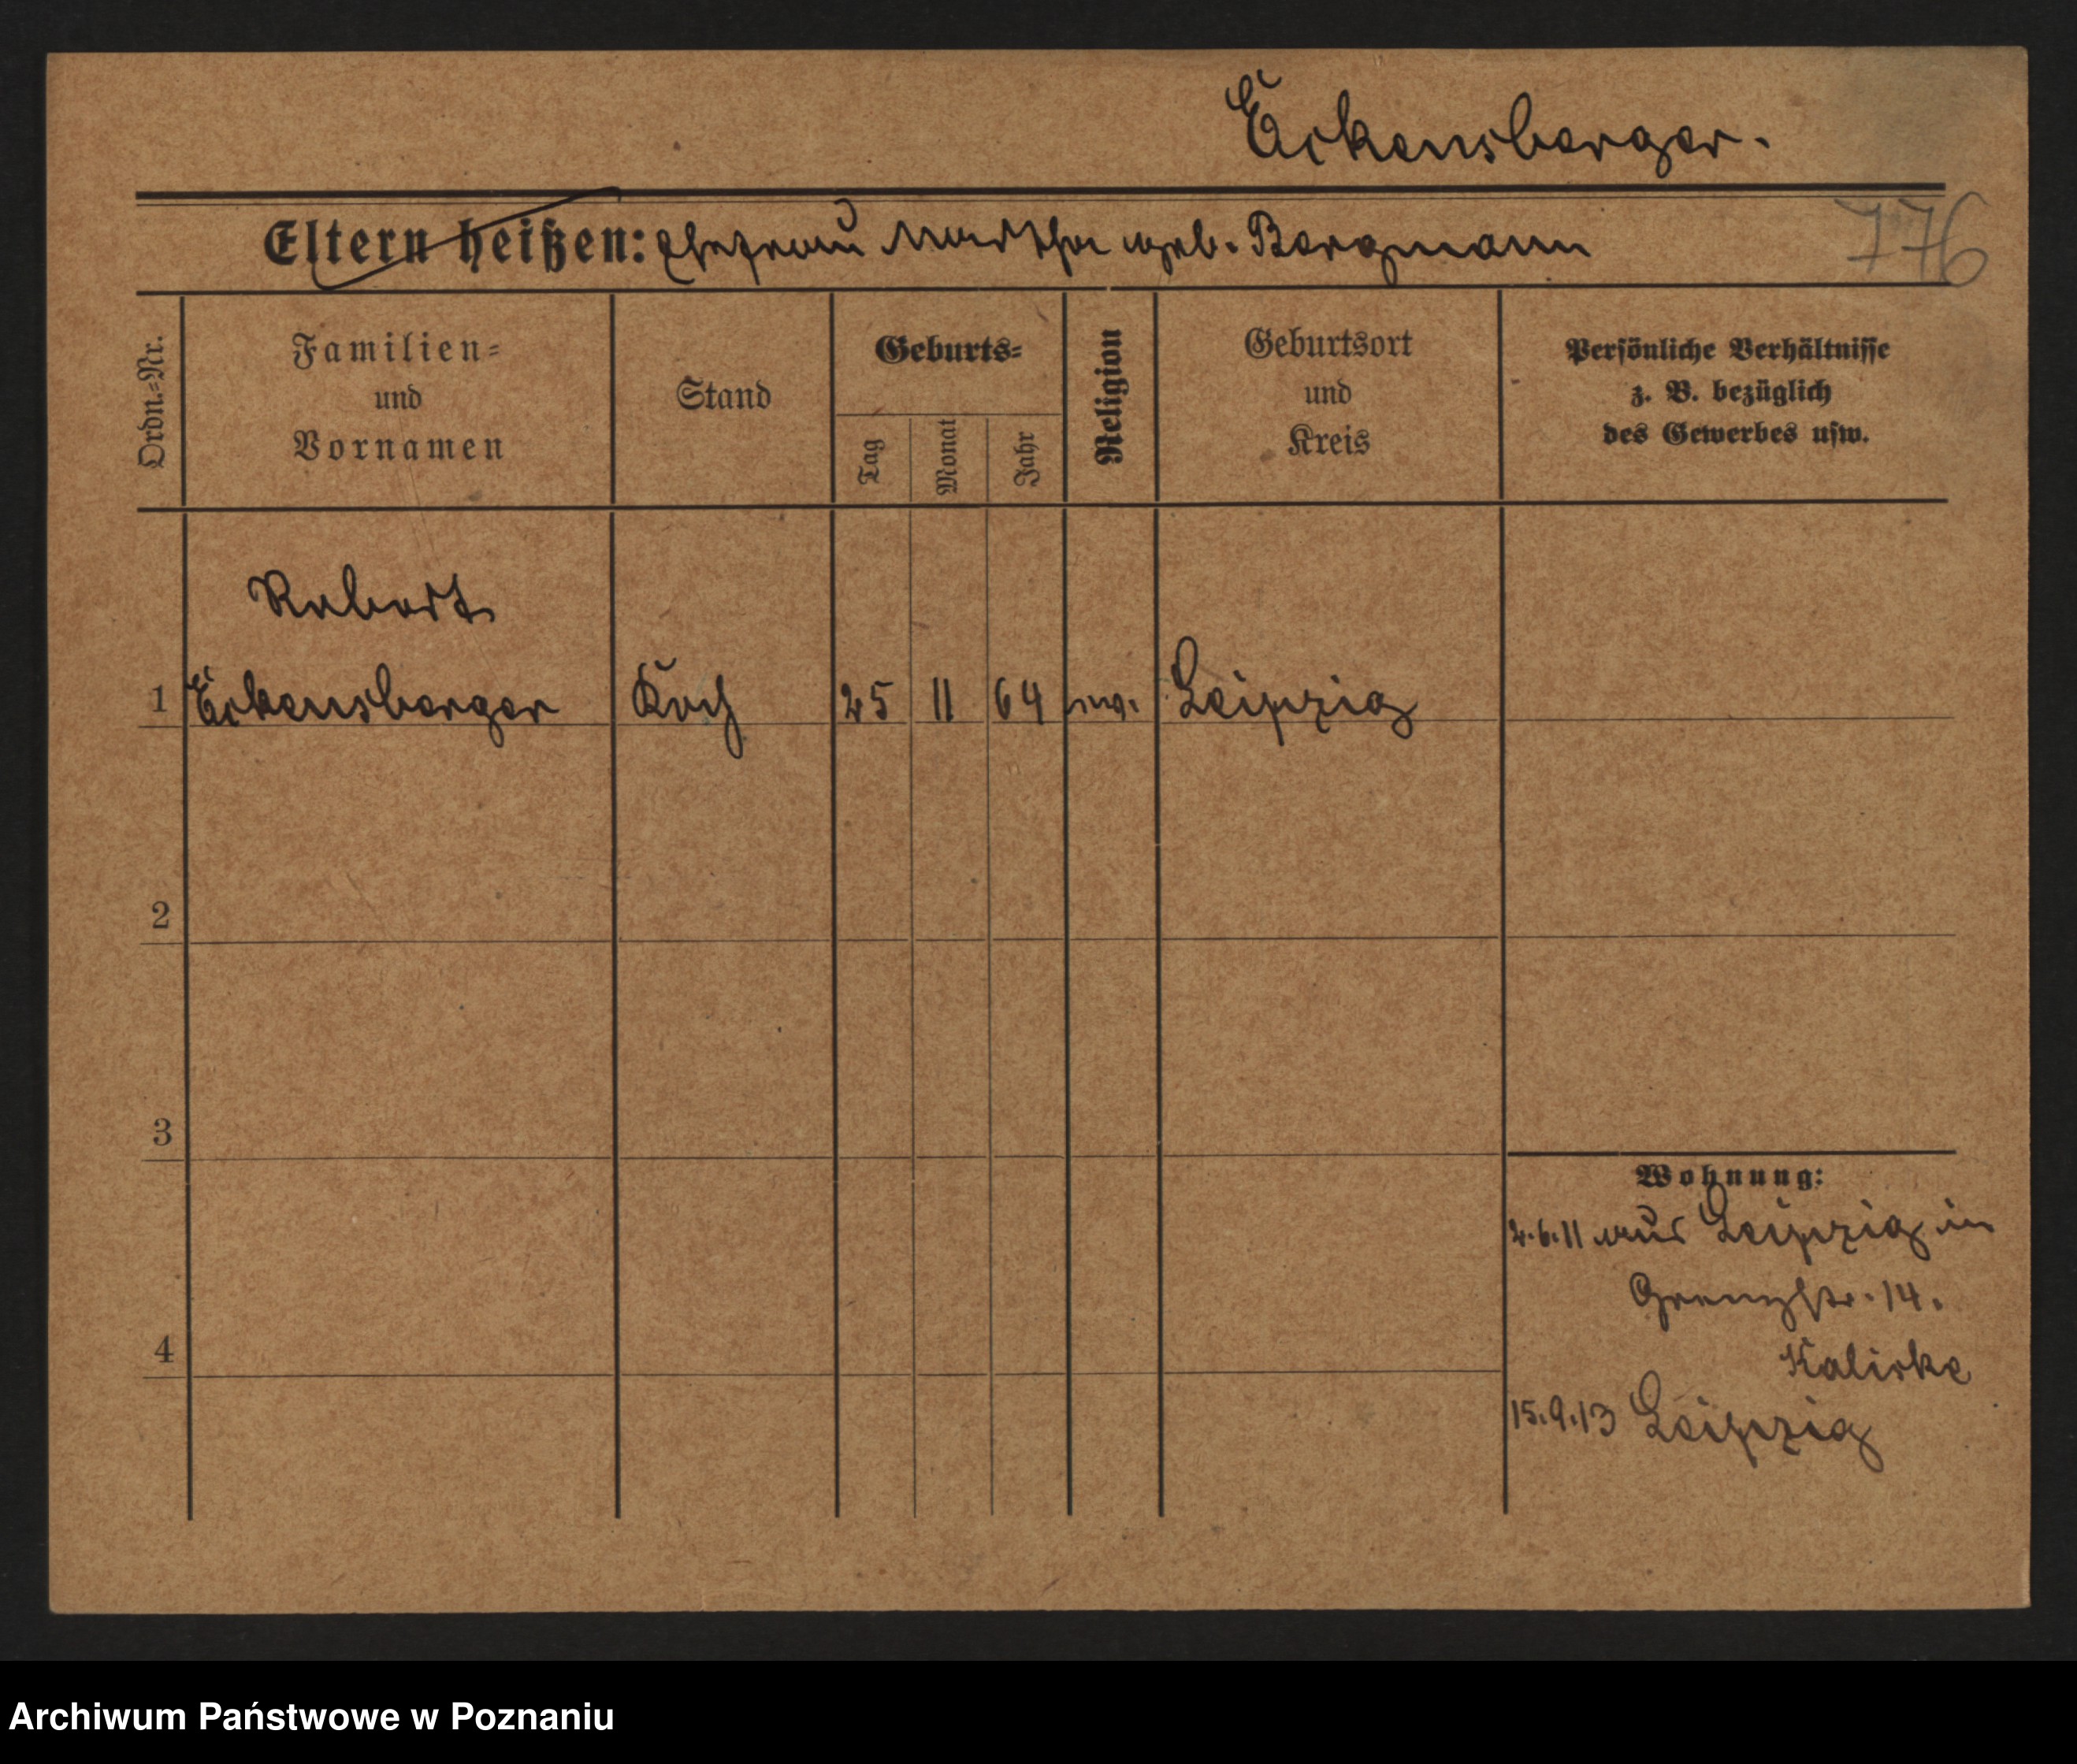 Eckensberger.
Eltern heißen: Ehefrau Martha geb. Bergmann
776
Ordn.=Nr.
Familien=
und
Vornamen
Stand
Geburts=
Tag
Monat
Jahr
Religion
Geburtsort
und
Kreis
Persönliche Verhältnisse
z. B. bezüglich
des Gewerbes usw.
Robert
1 Eckensberger Koch 25 11 64 Leipzig
2
3
4
Wohnung:
2.6.11 aus Leipzig in
Grenzstr. 14.
Kaliske
15.9.13 Leipzig
Archiwum Państwowe w Poznaniu